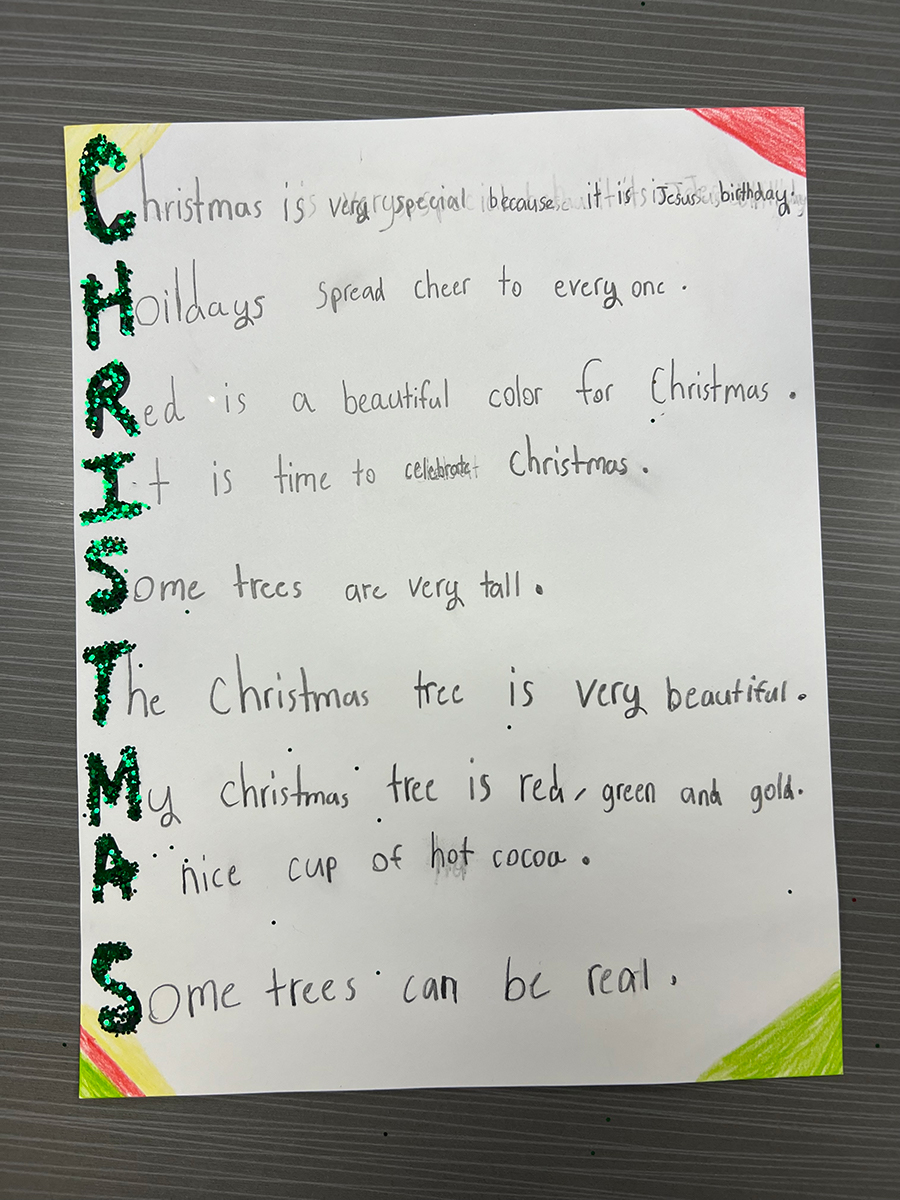 Christmas is very special because it is Jesus birthday.
Hoildays spread cheer to every one.
Red is a beautiful color for Christmas.
It is time to celebrate Christmas.
Some trees are very tall.
The Christmas tree is very beautiful.
My christmas tree is red, green and gold.
A nice cup of hot cocoa.
Some trees can be real.